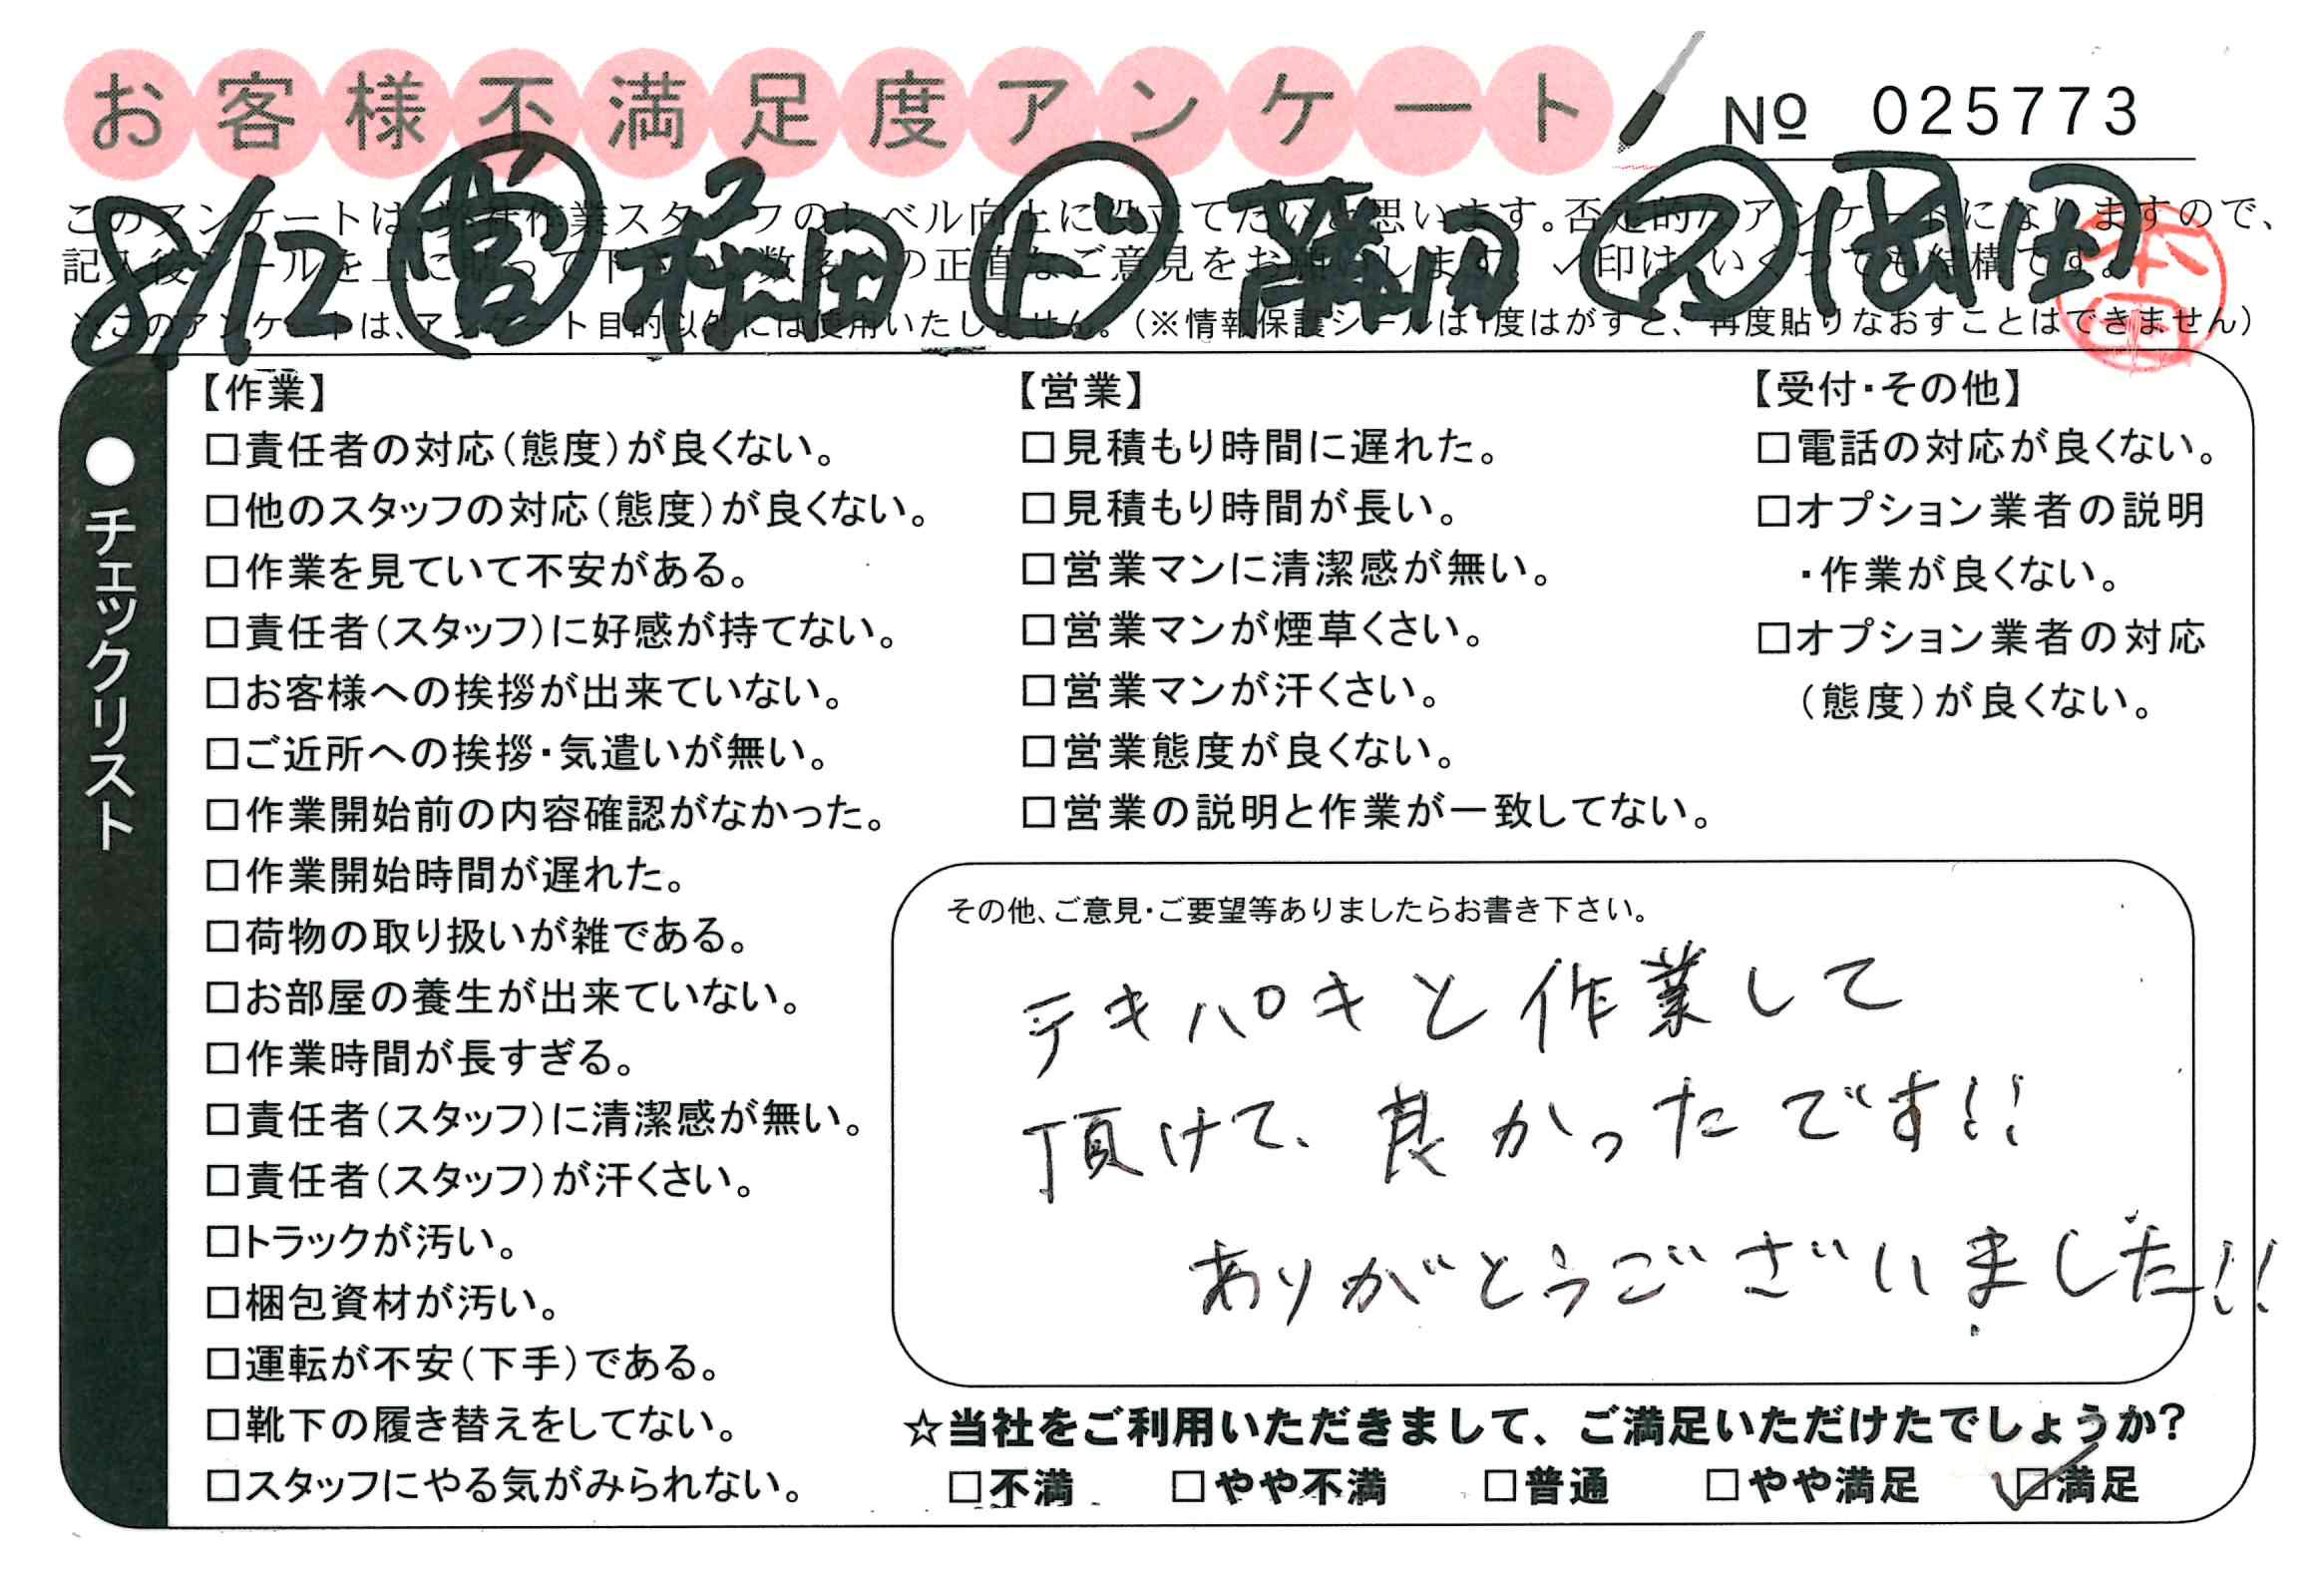 お客様不満足度アンケート
No 025773
8/12 営 桜田 ド 藤田 ス 岡田
※このアンケートは、アンケート目的以外には使用いたしません。(※情報保護シールは1度はがすと、再度貼りなおすことはできません)
●チェックリスト
【作業】
□責任者の対応(態度)が良くない。
□他のスタッフの対応(態度)が良くない。
□作業を見ていて不安がある。
□責任者(スタッフ)に好感が持てない。
□お客様への挨拶が出来ていない。
□ご近所への挨拶・気遣いが無い。
□作業開始前の内容確認がなかった。
□作業開始時間が遅れた。
□荷物の取り扱いが雑である。
□お部屋の養生が出来ていない。
□作業時間が長すぎる。
□責任者(スタッフ)に清潔感が無い。
□責任者(スタッフ)が汗くさい。
□トラックが汚い。
□梱包資材が汚い。
□運転が不安(下手)である。
□靴下の履き替えをしてない。
□スタッフにやる気がみられない。
【営業】
□見積もり時間に遅れた。
□見積もり時間が長い。
□営業マンに清潔感が無い。
□営業マンが煙草くさい。
□営業マンが汗くさい。
□営業態度が良くない。
□営業の説明と作業が一致してない。
【受付・その他】
□電話の対応が良くない。
□オプション業者の説明
・作業が良くない。
□オプション業者の対応
(態度)が良くない。
その他、ご意見・ご要望等ありましたらお書き下さい。
テキパキと作業して
頂けて、良かったです!!
ありがとうございました!!
☆当社をご利用いただきまして、ご満足いただけたでしょうか?
□不満 □やや不満 □普通 □やや満足 ☑満足